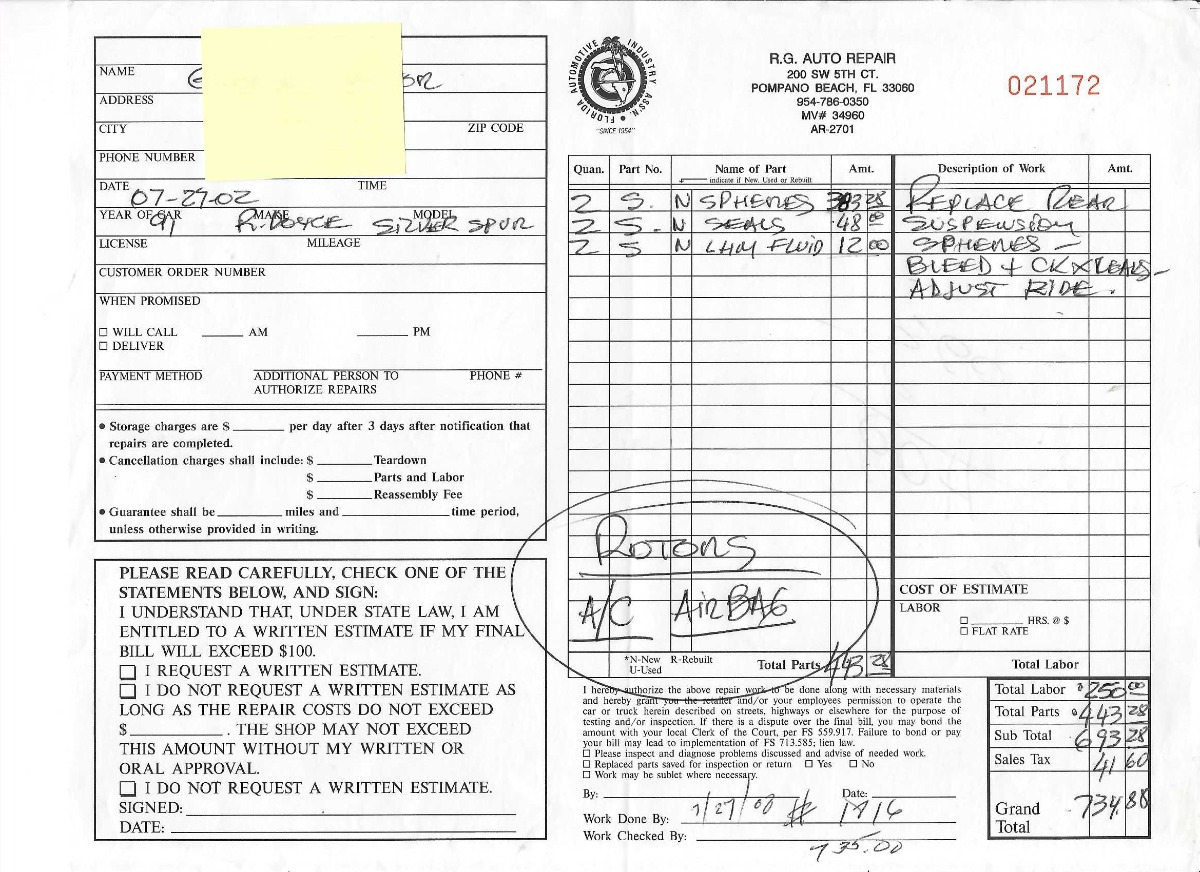 NAME
ADDRESS
CITY ZIP CODE
PHONE NUMBER
DATE 07-27-02 TIME
YEAR OF CAR 91 MAKE R. ROYCE MODEL SILVER SPUR
LICENSE MILEAGE
CUSTOMER ORDER NUMBER
WHEN PROMISED
☐ WILL CALL ______ AM ______ PM
☐ DELIVER
PAYMENT METHOD ADDITIONAL PERSON TO AUTHORIZE REPAIRS PHONE #
• Storage charges are $ ______ per day after 3 days after notification that
repairs are completed.
• Cancellation charges shall include: $ ______ Teardown
$ ______ Parts and Labor
$ ______ Reassembly Fee
• Guarantee shall be ______ miles and ______ time period,
unless otherwise provided in writing.
PLEASE READ CAREFULLY, CHECK ONE OF THE
STATEMENTS BELOW, AND SIGN:
I UNDERSTAND THAT, UNDER STATE LAW, I AM
ENTITLED TO A WRITTEN ESTIMATE IF MY FINAL
BILL WILL EXCEED $100.
☐ I REQUEST A WRITTEN ESTIMATE.
☐ I DO NOT REQUEST A WRITTEN ESTIMATE AS
LONG AS THE REPAIR COSTS DO NOT EXCEED
$ ______ . THE SHOP MAY NOT EXCEED
THIS AMOUNT WITHOUT MY WRITTEN OR
ORAL APPROVAL.
☐ I DO NOT REQUEST A WRITTEN ESTIMATE.
SIGNED:
DATE:
FLORIDA AUTOMOTIVE INDUSTRY ASS'N.
"SINCE 1954"
R.G. AUTO REPAIR
200 SW 5TH CT.
POMPANO BEACH, FL 33060
954-786-0350
MV# 34960
AR-2701
021172
Quan. Part No. Name of Part Amt. Description of Work Amt.
indicate if New, Used or Rebuilt
2 S. N SPHERES 383 28 REPLACE REAR
2 S. N SEALS 48 00 SUSPENSION
2 S N LHM FLUID 12 00 SPHERES –
BLEED + CK x LEAKS –
ADJUST RIDE.
ROTORS
A/C AIRBAG
COST OF ESTIMATE
LABOR
☐ ______ HRS. @ $
☐ FLAT RATE
*N-New R-Rebuilt
U-Used
Total Parts 443.28 Total Labor
I hereby authorize the above repair work to be done along with necessary materials
and hereby grant you the retailer and/or your employees permission to operate the
car or truck herein described on streets, highways or elsewhere for the purpose of
testing and/or inspection. If there is a dispute over the final bill, you may bond the
amount with your local Clerk of the Court, per FS 559.917. Failure to bond or pay
your bill may lead to implementation of FS 713.585; lien law.
☐ Please inspect and diagnose problems discussed and advise of needed work.
☐ Replaced parts saved for inspection or return ☐ Yes ☐ No
☐ Work may be sublet where necessary.
By: Date:
Work Done By: 7/27/00 # 1916
Work Checked By: 735.00
Total Labor $250 00
Total Parts 443 28
Sub Total 693 28
Sales Tax 41 60
Grand Total 734.88